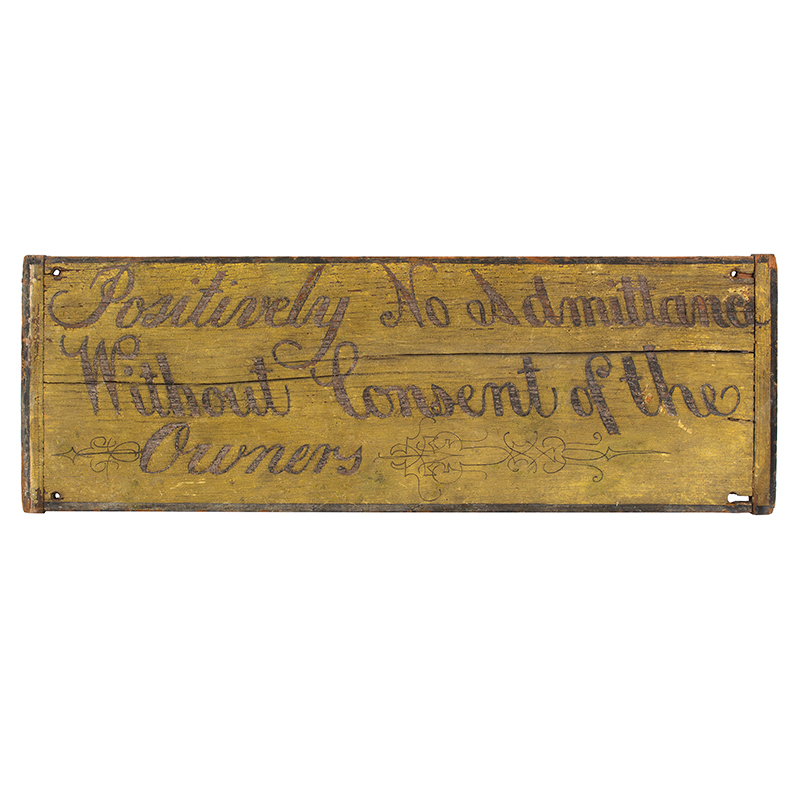 Positively No Admittanc
Without Consent of the
Owners